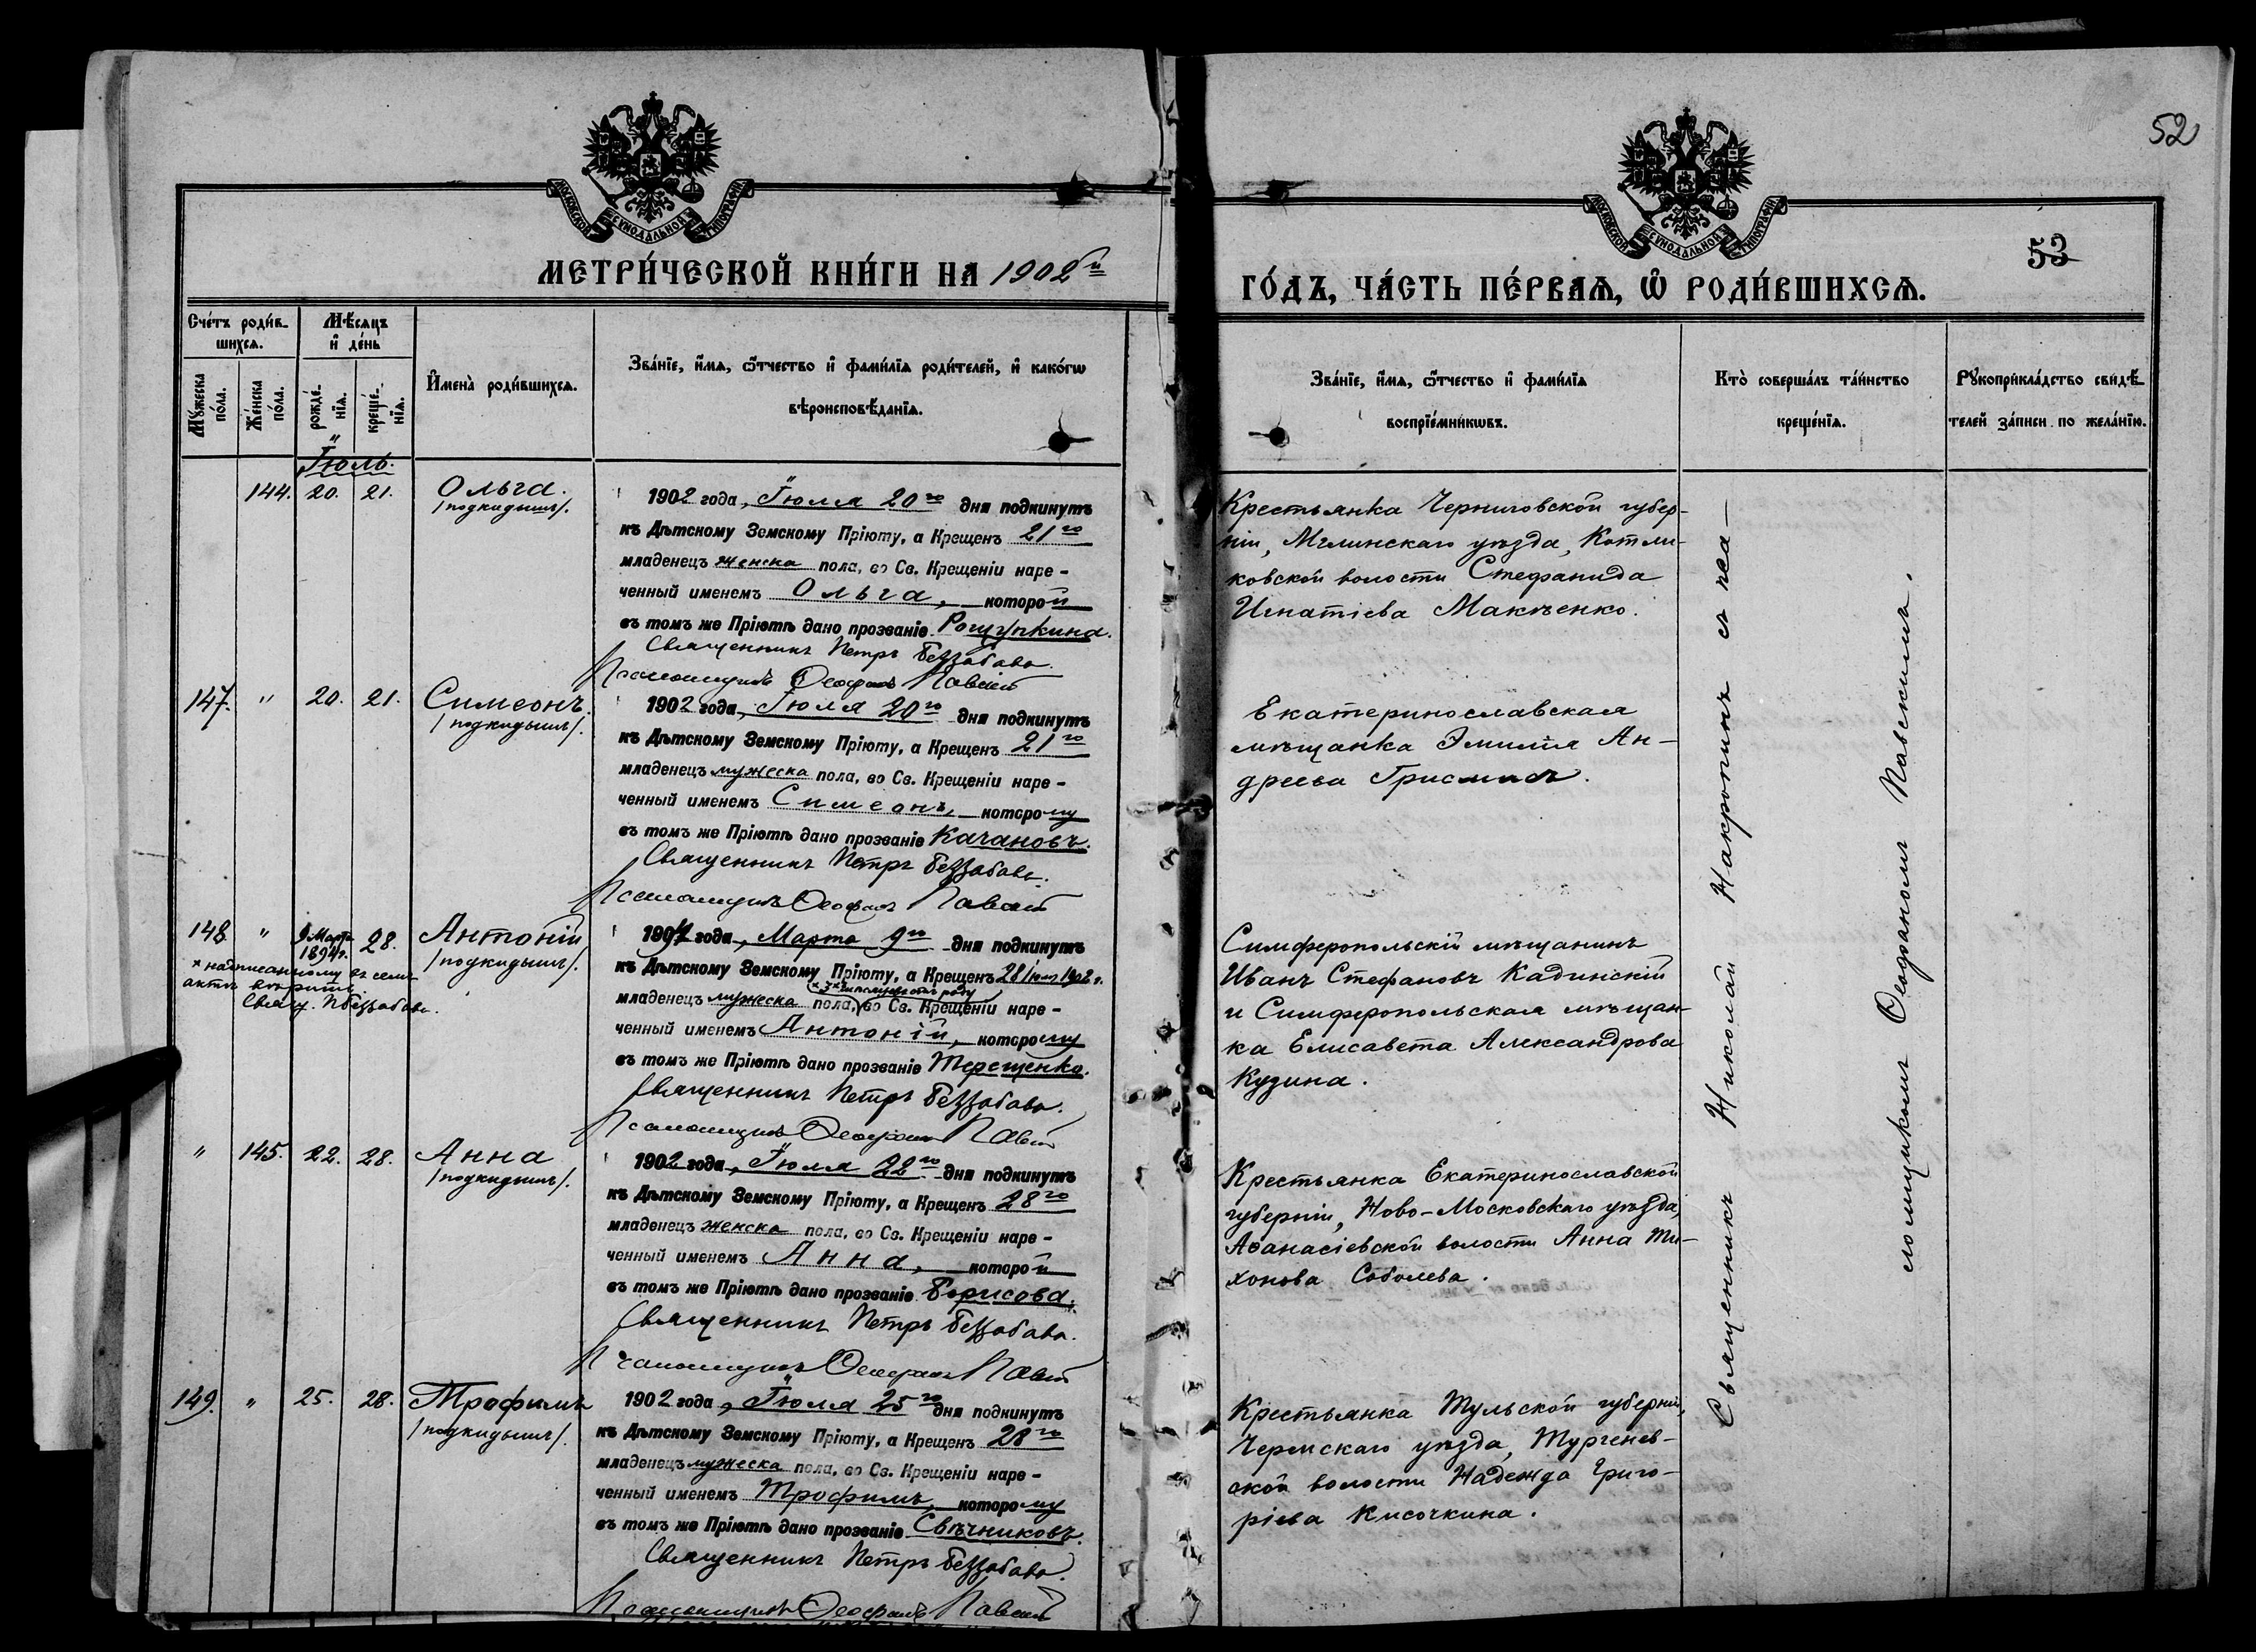 52
МОСКОВСКОЙ СѴНОДАЛЬНОЙ ТИПОГРАФІИ
МОСКОВСКОЙ СѴНОДАЛЬНОЙ ТИПОГРАФІИ
53
МЕТРИ́ЧЕСКОЙ КНИ́ГИ НА 1902й
ГО́ДЪ, ЧА́СТЬ ПЕ́РВАѦ, Ѡ҆ РОДИ́ВШИХСѦ.
Сче́тъ роди́в-
шихсѧ.
Мѣ́сѧцъ
и҆ де́нь
Мꙋ́жеска
по́ла.
Же́нска
по́ла.
рожде́-
нїѧ.
креще́-
нїѧ.
И҆мена̀ роди́вшихсѧ.
Зва́нїе, и҆́мѧ, ѻ҆́тчество и҆ фами́лїѧ роди́телей, и҆ како́гѡ
вѣроисповѣ́данїѧ.
Зва́нїе, и҆́мѧ, ѻ҆́тчество и҆ фами́лїѧ
воспрїе́мникѡвъ.
Кто̀ соверша́лъ та́инство
креще́нїѧ.
Рꙋкоприкла́дство свидѣ́-
телей за́писи по жела́нїю.
Іюль.
144. 20. 21. Ольга.
/подкидышъ/.
1902 года, Іюля 20го дня подкинутъ
къ Дѣтскому Земскому Пріюту, а Крещенъ 21го
младенецъ женска пола, во Св. Крещеніи наре-
ченный именемъ Ольга, которой
въ томъ же Пріютѣ дано прозваніе Рощупкина.
Священникъ Петръ Беззабава.
Псаломщикъ Ѳеофанъ Павскій
Крестьянка Черниговской губер-
ніи, Мглинскаго уѣзда, Котля-
ковской волости Стефанида
Игнатіева Макѣенко.
147. " 20. 21. Симеонъ.
/подкидышъ/.
1902 года, Іюля 20го дня подкинутъ
къ Дѣтскому Земскому Пріюту, а Крещенъ 21го
младенецъ мужеска пола, во Св. Крещеніи наре-
ченный именемъ Симеонъ, которому
въ томъ же Пріютѣ дано прозваніе Качановъ.
Священникъ Петръ Беззабава.
Псаломщикъ Ѳеофанъ Павскій
Екатеринославская
мѣщанка Эмилія Ан-
дреева
148 " 9 Марта 1894г. 28. Антоній
/подкидышъ/.
× надписанному въ семъ
актѣ вѣрить
Свящ. П. Беззабава.
1894 года, Марта 9го дня подкинутъ
къ Дѣтскому Земскому Пріюту, а Крещенъ 28 Іюля 1902 г.
младенецъ мужеска пола, во Св. Крещеніи наре-
ченный именемъ Антоній, которому
въ томъ же Пріютѣ дано прозваніе Терещенко.
Священникъ Петръ Беззабава.
Псаломщикъ Ѳеофанъ Павскій
Симферопольскій мѣщанинъ
Иванъ Стефановъ Кадинскій
и Симферопольская мѣщан-
ка Елисавета Александрова
Кузина.
" 145. 22. 28. Анна
/подкидышъ/.
1902 года, Іюля 22го дня подкинутъ
къ Дѣтскому Земскому Пріюту, а Крещенъ 28го
младенецъ женска пола, во Св. Крещеніи наре-
ченный именемъ Анна, которой
въ томъ же Пріютѣ дано прозваніе Борисова.
Священникъ Петръ Беззабава.
Псаломщикъ Ѳеофанъ Павскій
Крестьянка Екатеринославской
губерніи, Ново-Московскаго уѣзда,
Аѳанасіевской волости Анна Ти-
хонова Соболева.
149. " 25. 28. Трофимъ
/подкидышъ/.
1902 года, Іюля 25го дня подкинутъ
къ Дѣтскому Земскому Пріюту, а Крещенъ 28го
младенецъ мужеска пола, во Св. Крещеніи наре-
ченный именемъ Трофимъ, которому
въ томъ же Пріютѣ дано прозваніе Свѣчниковъ.
Священникъ Петръ Беззабава.
Псаломщикъ Ѳеофанъ Павскій
Крестьянка Тульской губерніи,
Чернскаго уѣзда, Тургенев-
ской волости Надежда Григо-
ріева Кисочкина.
Священникъ Николай Накропинъ съ пса-
ломщикомъ Ѳеофаномъ Павскимъ.